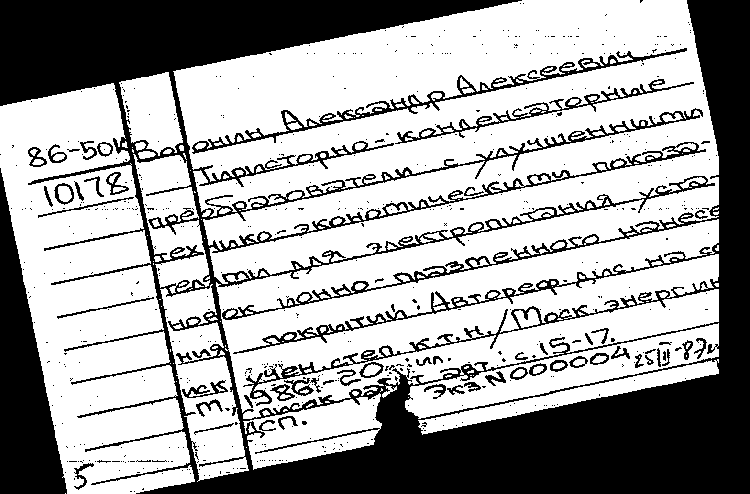 86-50к Воронин, Александр Алексеевич
10178 Тиристорно-конденсаторные
преобразователи с улучшенными
технико-экономическими показа-
телями для электропитания уста-
новок ионно-плазменного нанесе
ния покрытий: Автореф. дис. на со
иск. учен. степ. к.т.н. / Моск. энерг. ин
-т., 1986. -20 с.: ил.
список работ авт.: с. 15-17.
ДСП. Экз N000004 25III-87
5